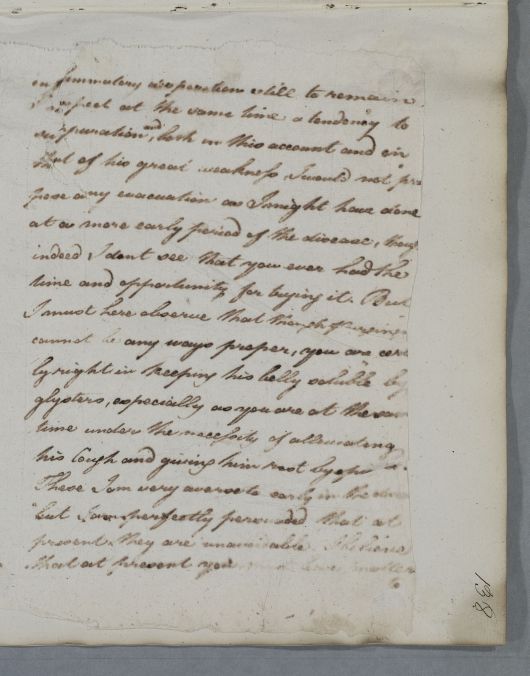 inflammatory disposition still to remain
I suspect at the same time a tendency to
suppuration, and both on this account and on
that of his great weakness I would not pro
pose any evacuation as I might have done
at a more early period of the disease, thoug
indeed I dont see that you ever had the
time and opportunity for trying it. But
I must here observe that though purging
cannot be any ways proper, you are cert
ly right in keeping his belly soluble by
glysters, especially as you are at the same
time under the necessity of alleviating
his Cough and giving him rest by
These I am very averse to early in the
but I am perfectly perswaded that at
present they are unavoidable. I believe
that at present you
to
138